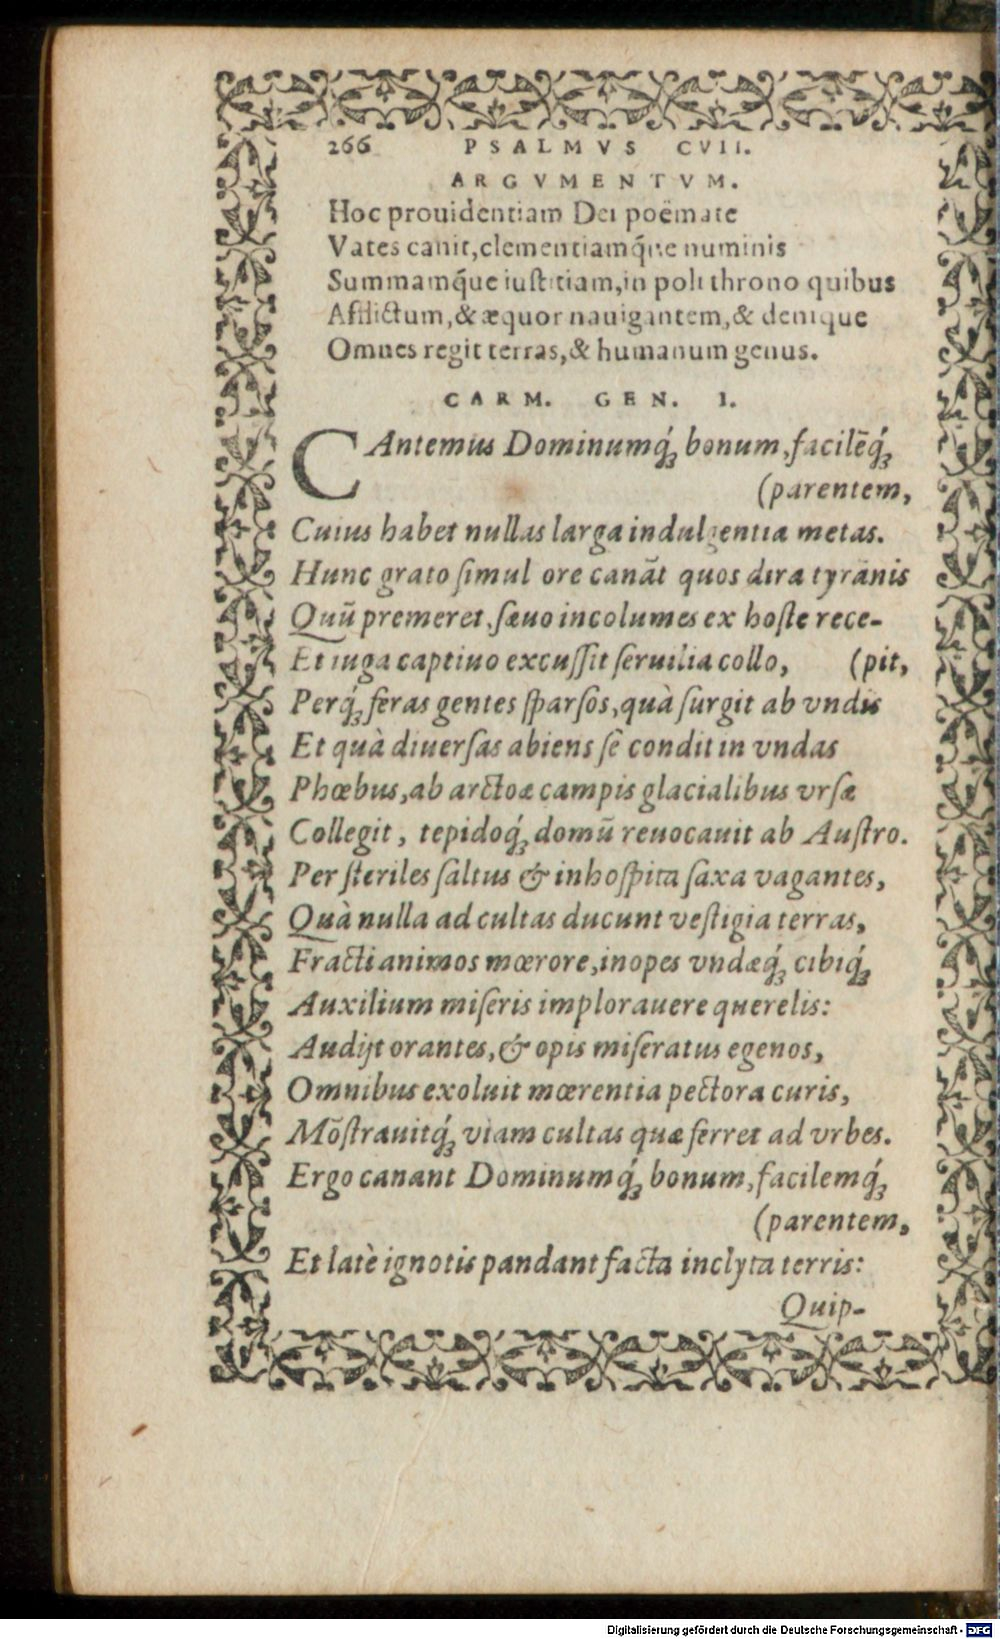 266 PSALMVS CVII.
ARGVMENTVM.
Hoc prouidentiam Dei poëmate
Vates canit, clementiamq́ue numinis
Summamq́ue iustitiam, in poli throno quibus
Afflictum, & æquor nauigantem, & denique
Omnes regit terras, & humanum genus.
CARM. GEN. I.
CAntemus Dominumq́; bonum, facilēq́;
(parentem,
Cuius habet nullas larga indulgentia metas.
Hunc grato ſimul ore canāt quos dira tyrānis
Quū premeret, ſæuo incolumes ex hoſte rece-
Et iuga captiuo excuſſit ſeruilia collo, (pit,
Perq́; feras gentes ſparſos, quà ſurgit ab vndis
Et quà diuerſas abiens ſe condit in vndas
Phœbus, ab arctoæ campis glacialibus vrſæ
Collegit, tepidoq́; domū reuocauit ab Auſtro.
Per ſteriles ſaltus & inhoſpita ſaxa vagantes,
Quà nulla ad cultas ducunt veſtigia terras,
Fracti animos mœrore, inopes vndæq́; cibiq́;
Auxilium miſeris implorauere querelis:
Audijt orantes, & opis miſeratus egenos,
Omnibus exoluit mœrentia pectora curis,
Mōſtrauitq́; viam cultas quæ ferret ad vrbes.
Ergo canant Dominumq́; bonum, facilemq́;
(parentem,
Et latè ignotis pandant facta inclyta terris:
Quip-
Digitalisierung gefördert durch die Deutsche Forschungsgemeinschaft - DFG